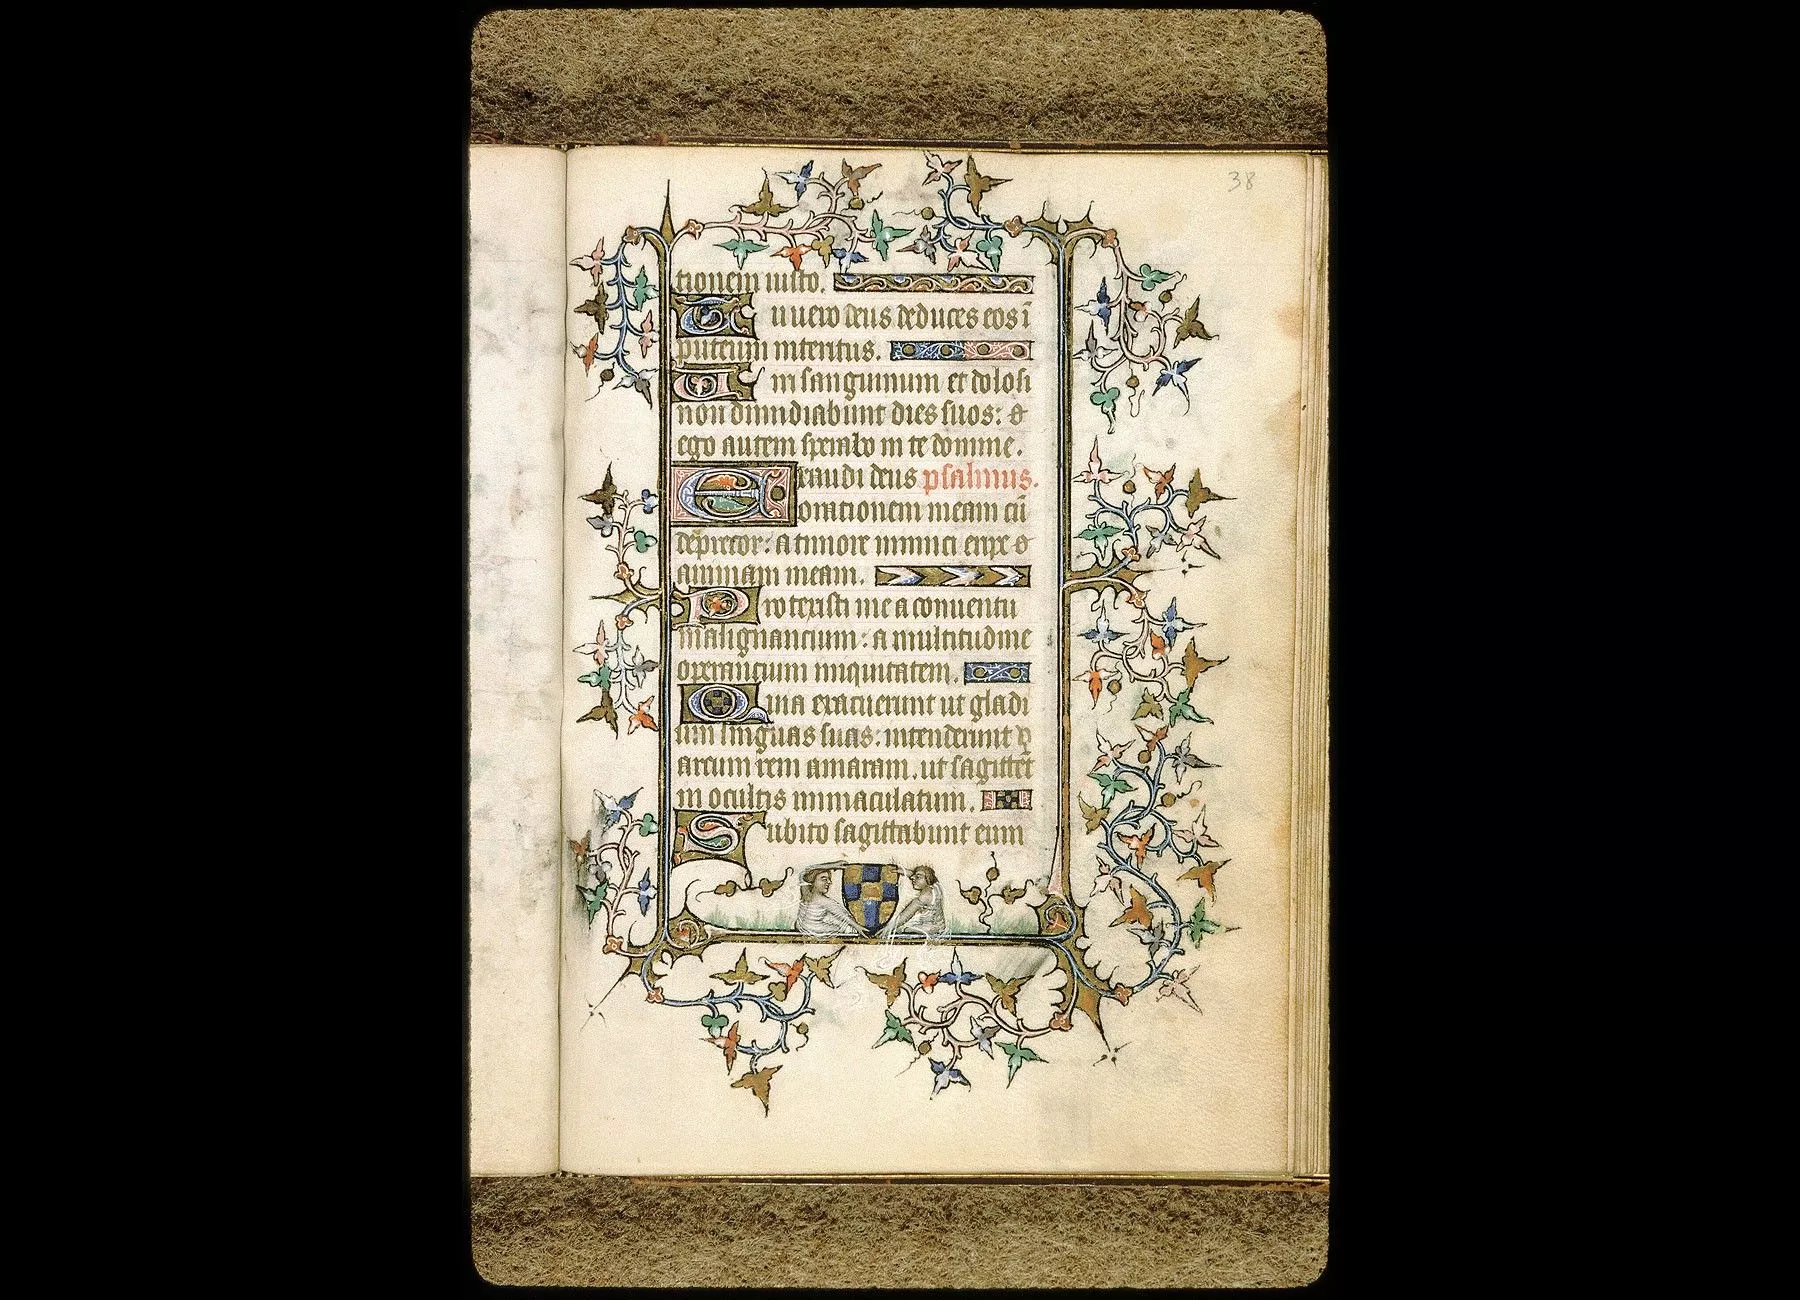 38
tionem iusto.
Tu uero deus deduces eos ī
puteum interitus.
Uiri sanguinum et dolosi
non dimidiabunt dies suos:
ego autem sperabo in te domine.
Exaudi deus psalmus.
orationem meam cū
deprecor: a timore inimici eripe
animam meam.
Protexisti me a conuentu
malignancium: a multitudine
operancium iniquitatem.
Quia exacuerunt ut gladi
um linguas suas: intenderunt
arcum rem amaram. ut sagittēt
in ocultis immaculatum.
Subito sagittabunt eum